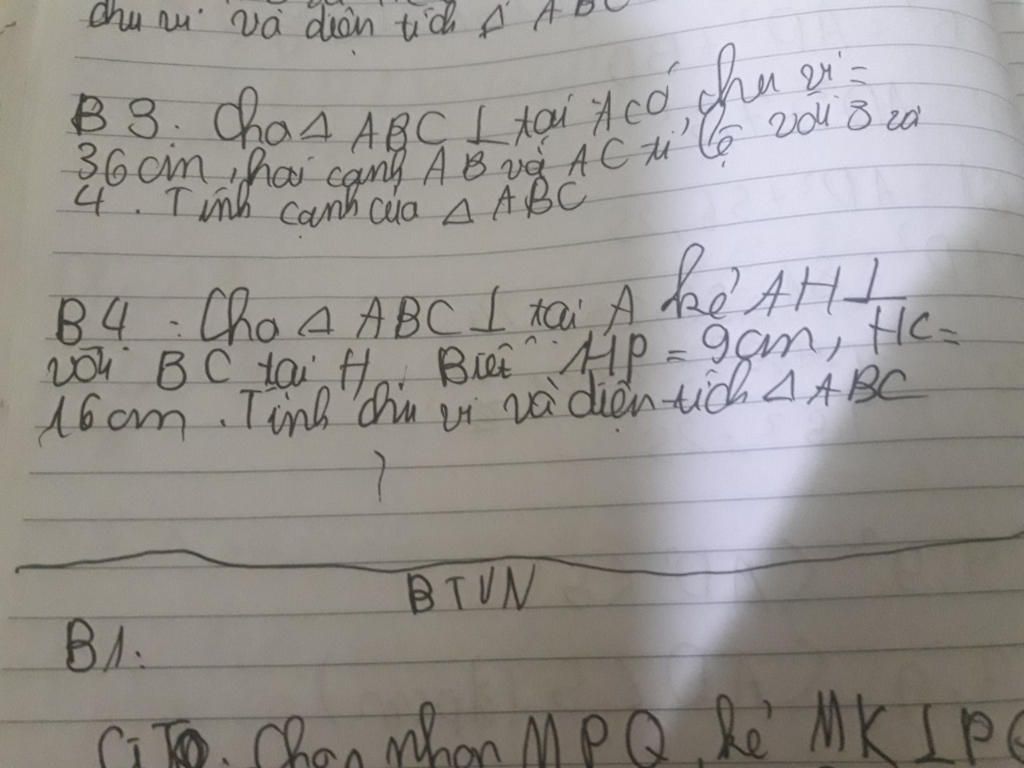 chu vi và diện tích Δ ABC
B3. Cho Δ ABC ⊥ tại A có, chu vi =
36cm, hai cạnh AB và AC tỉ lệ với 3 và
4. Tính cạnh của Δ ABC
B4: Cho Δ ABC ⊥ tại A kẻ AH ⊥
với BC tại H. Biết HP = 9cm, HC =
16cm. Tính chu vi và diện tích Δ ABC
BTVN
B1:
Cho nhọn MPQ, kẻ MK ⊥ PQ